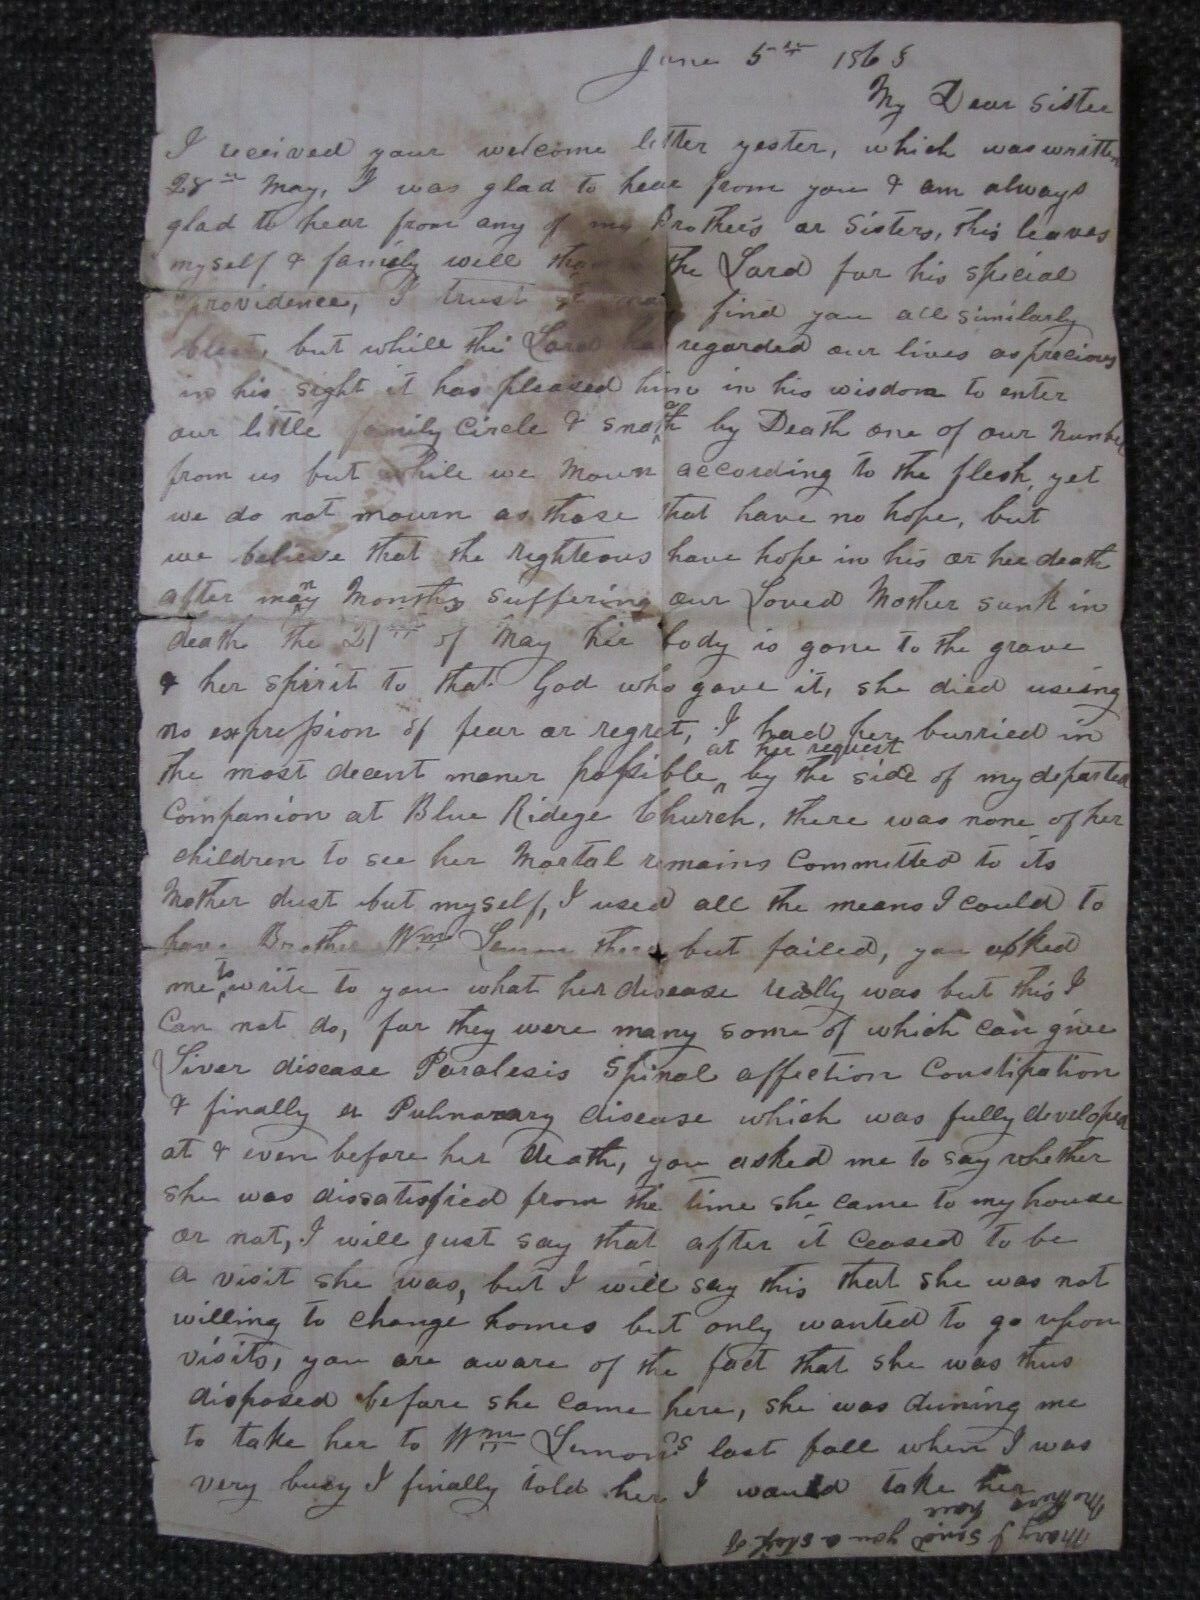 June 5th 1868
My Dear Sister
I received your welcome letter yester, which was written
28th May, I was glad to hear from you & am always
glad to hear from any of my Brothers or Sisters, this leaves
myself & family well the Lord for his special
providence, I trust find you all similarly
blest, but while the Lord has regarded our lives as precious
in his sight it has pleased him in his wisdom to enter
our little family Circle & snatch by Death one of our Number
from us but while we mourn according to the flesh, yet
we do not mourn as those that have no hope, but
we believe that the righteous have hope in his or her death
after many Months suffering our Loved Mother sunk in
death the 21st of May her body is gone to the grave
& her spirit to that God who gave it, she died useing
no expression of fear or regret, I had her burried in
the most decent maner possible at her request by the side of my departed
Companion at Blue Ridege Church, there was none of her
children to see her Mortal remains Committed to its
Mother dust but myself, I used all the means I could to
have Brother Wm Lemon there but failed, you asked
me to write to you what her disease really was but this I
Can not do, for they were many some of which can give
Liver disease Paralesis Spinal affection Constipation
& finally a Pulmonary disease which was fully developed
at & even before her death, you asked me to say whether
she was dissatisfied from the time she came to my house
or not, I will just say that after it ceased to be
a visit she was, but I will say this that she was not
willing to change homes but only wanted to go upon
visits, you are aware of the fact that she was thus
disposed before she came here, she was duning me
to take her to Wm Lemons last fall when I was
very busy I finally told her I would take her
Mary I send you a of
Mothers hair